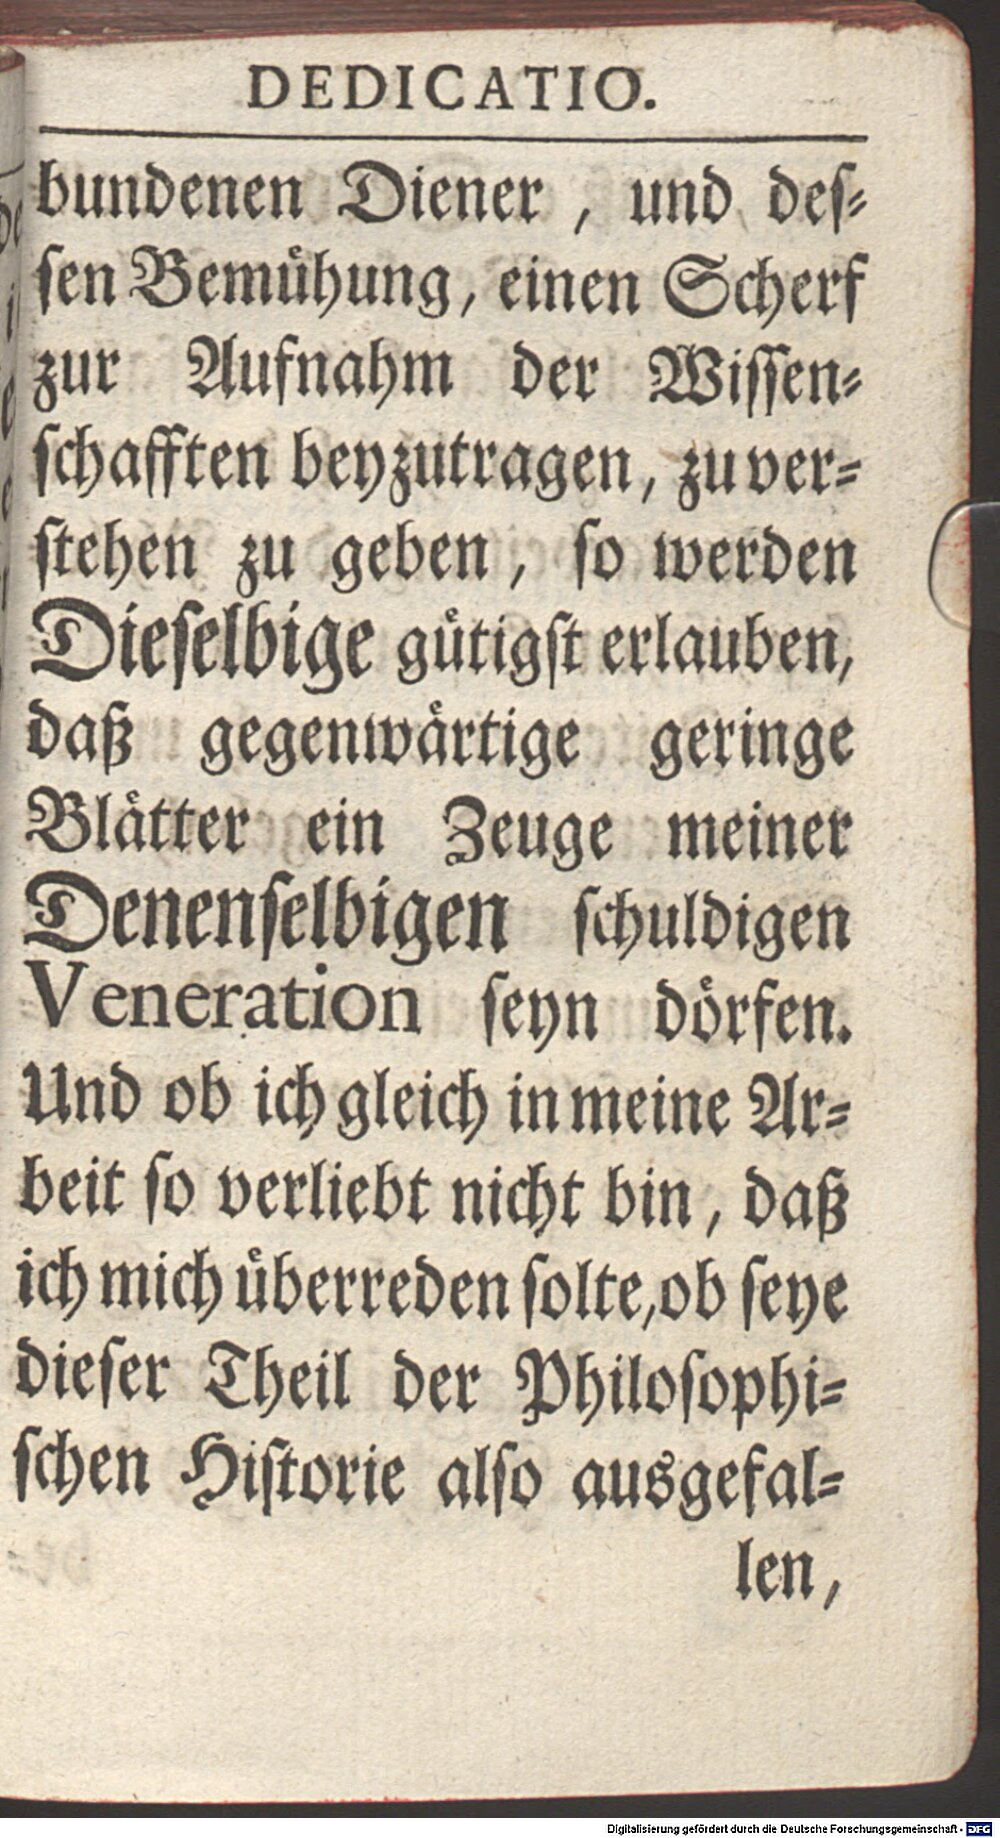 DEDICATIO.
bundenen Diener, und deſ-
ſen Bemuͤhung, einen Scherf
zur Aufnahm der Wiſſen-
ſchafften beyzutragen, zu ver-
ſtehen zu geben, ſo werden
Dieſelbige guͤtigſt erlauben,
daß gegenwaͤrtige geringe
Blaͤtter ein Zeuge meiner
Denenſelbigen ſchuldigen
Veneration ſeyn doͤrfen.
Und ob ich gleich in meine Ar-
beit ſo verliebt nicht bin, daß
ich mich uͤberreden ſolte, ob ſeye
dieſer Theil der Philoſophi-
ſchen Hiſtorie alſo ausgefal-
len,
Digitalisierung gefördert durch die Deutsche Forschungsgemeinschaft - DFG